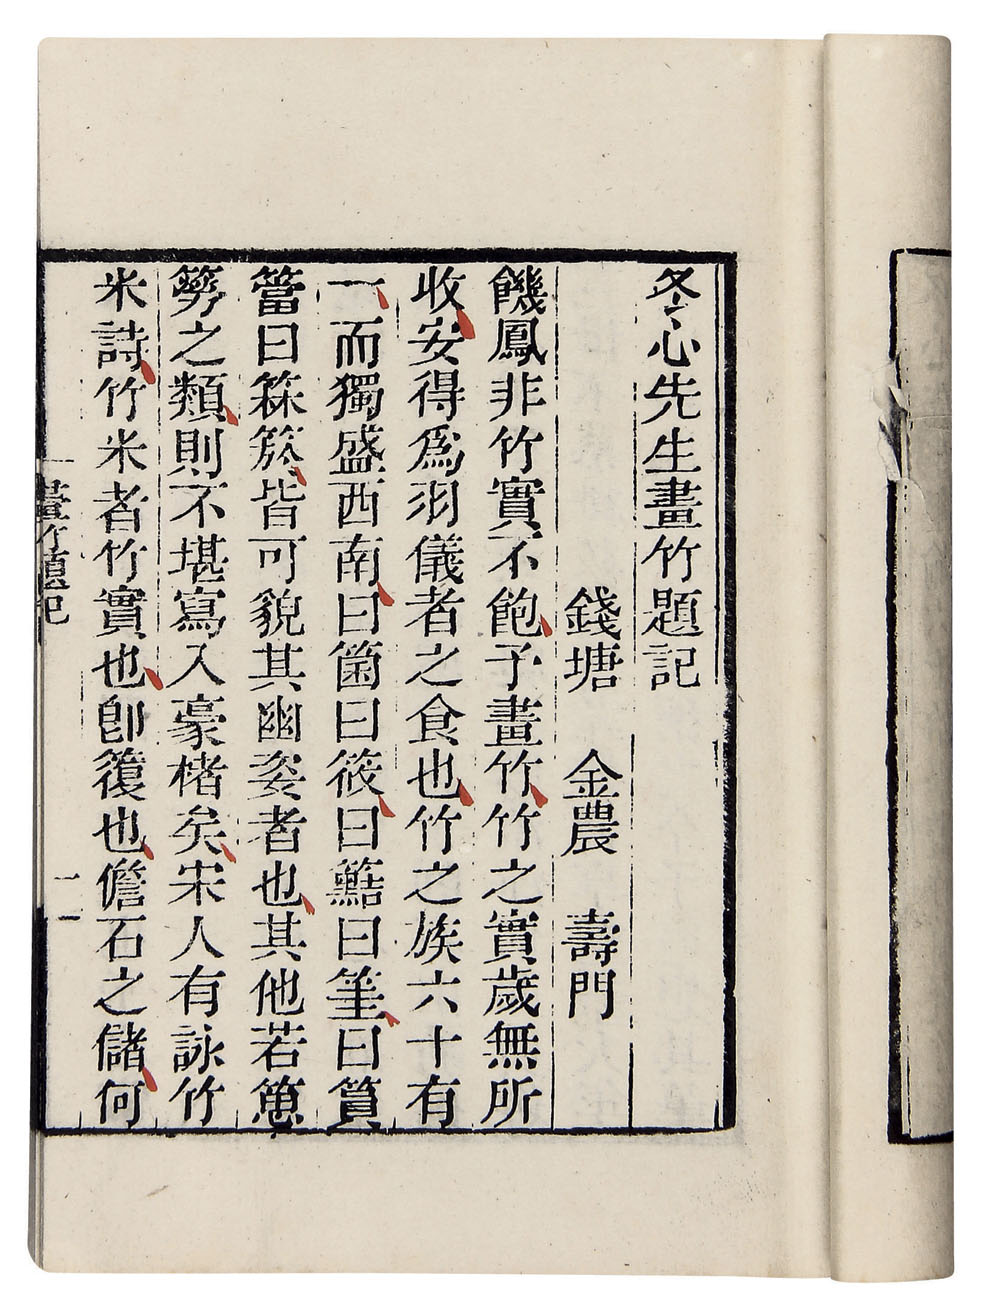 冬心先生畫竹題記
錢塘 金農 壽門
饑鳳非竹實不飽予畫竹竹之實歲無所
收安得為羽儀者之食也竹之族六十有
一而獨盛西南曰箘曰筱曰曰筀曰篔
簹曰箖箊皆可貌其幽姿者也其他若
簩之類則不堪寫入豪楮矣宋人有詠竹
米詩竹米者竹實也卽也儋石之儲何
畫竹題記
一